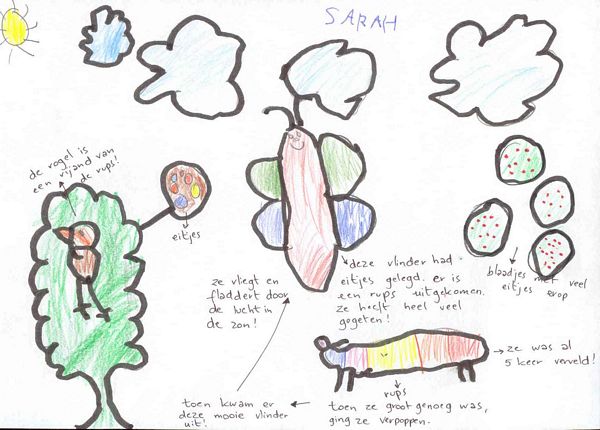 SARAH
de vogel is
een vijand van
de rups!
eitjes
ze vliegt en
fladdert door
de lucht in
de zon!
deze vlinder had
eitjes gelegd. er is
een rups uitgekomen.
ze heeft heel veel
gegeten!
blaadjes met veel
eitjes erop
ze was al
5 keer verveld!
rups
toen ze groot genoeg was,
ging ze verpoppen.
toen kwam er
deze mooie vlinder
uit!